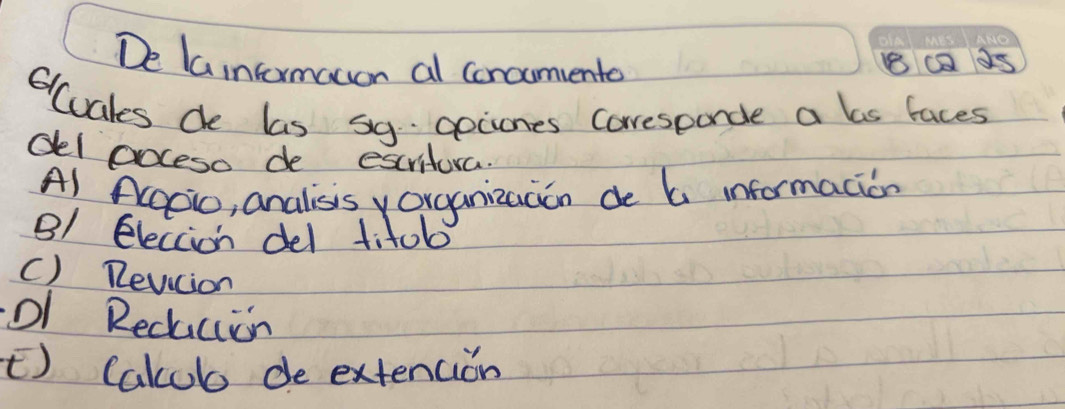 De la información al conocimiento
DÍA MES AÑO
18 02 25
6/Cuales de las sig. opciones corresponde a las faces
del proceso de escritura.
A) Acopio, analisis y organización de la información
B) Elección del titulo
C) Revicion
D) Redacción
E) Calculo de extención